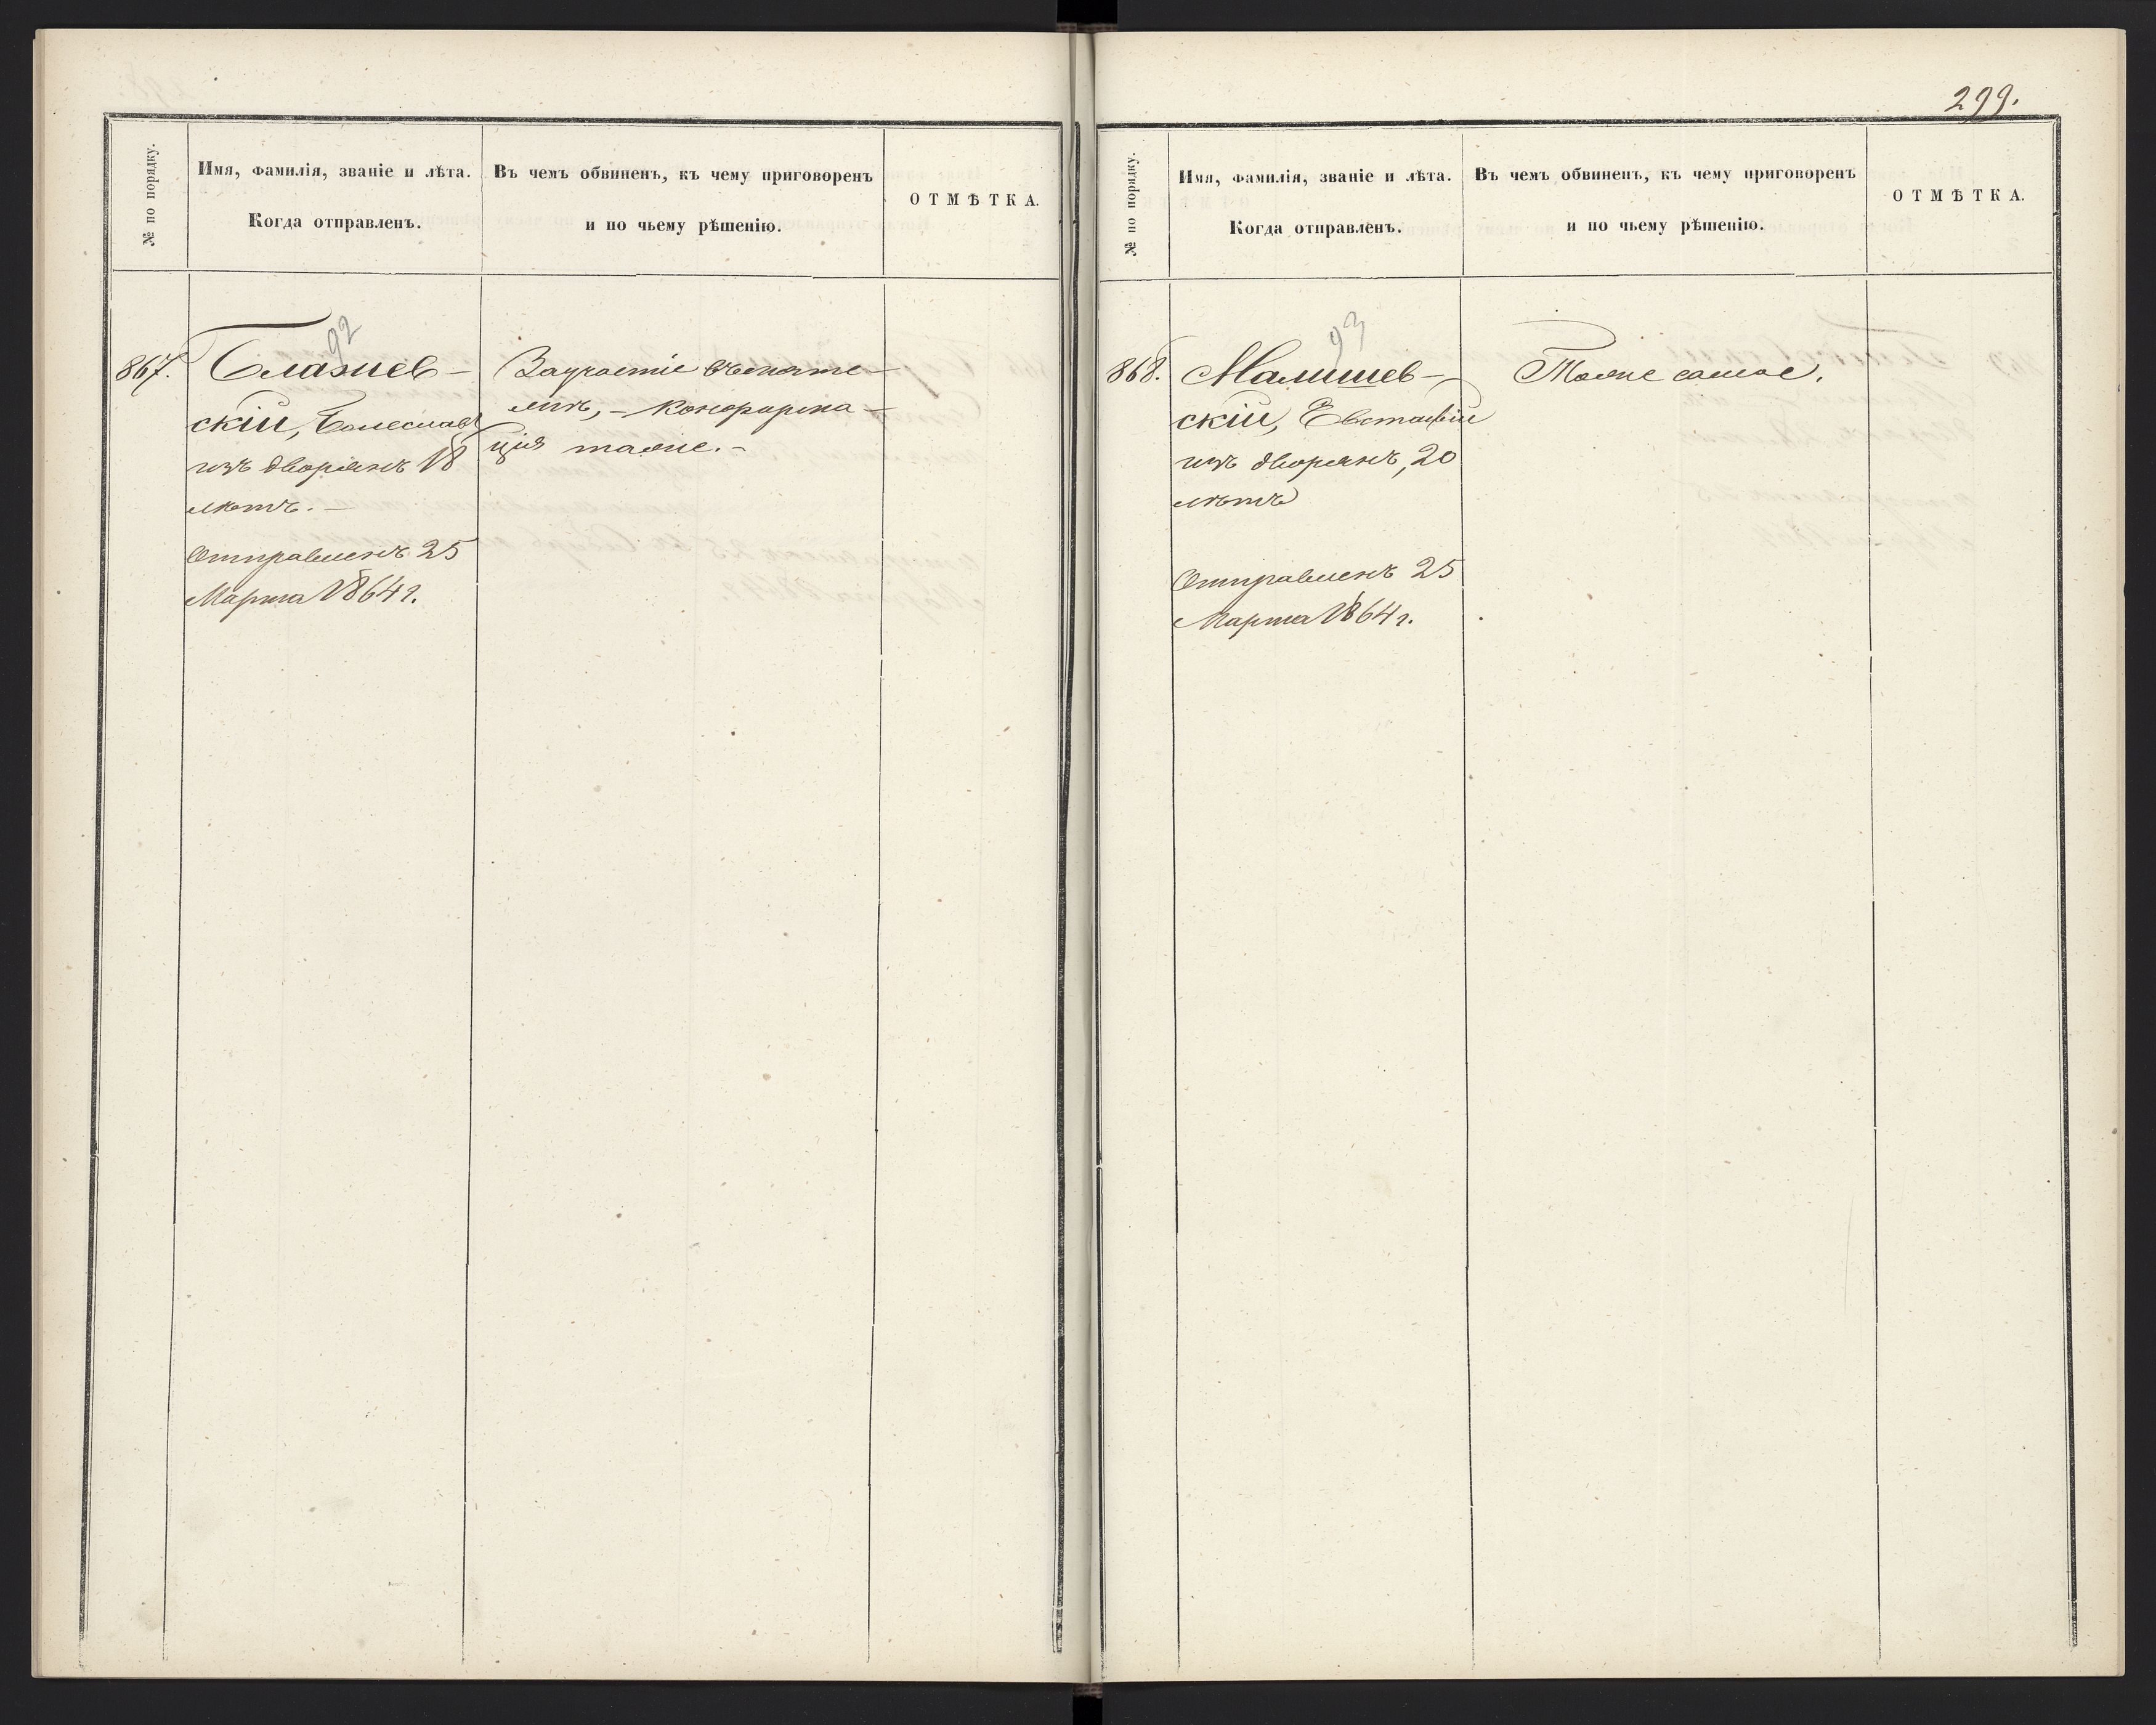 № по порядку.
Имя, фамилія, званіе и лѣта.
Когда отправленъ.
Въ чемъ обвиненъ, къ чему приговоренъ
и по чьему рѣшенію.
ОТМѢТКА.
92
867. Блажев-
скій, Болеславъ
изъ дворянъ 18
лѣтъ. -
Отправленъ 25
Марта 1864 г.
За участіе въ мяте-
жѣ, - конфирма-
ція таже. -
299.
№ по порядку.
Имя, фамилія, званіе и лѣта.
Когда отправленъ.
Въ чемъ обвиненъ, къ чему приговоренъ
и по чьему рѣшенію.
ОТМѢТКА.
93
868. Малишев-
скій, Евстафій
изъ дворянъ, 20
лѣтъ
Отправленъ 25
Марта 1864 г.
Тоже самое.